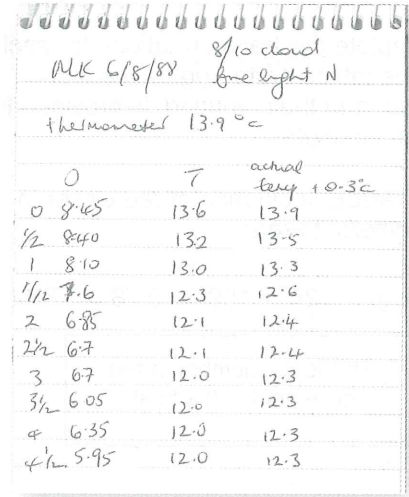 8/10 cloud
MLK 6/8/88 fine light N
thermometer 13.9°c
actual
O T temp + 0.3°c
0 8.45 13.6 13.9
1/2 8.40 13.2 13.5
1 8.10 13.0 13.3
1 1/2 7.6 12.3 12.6
2 6.85 12.1 12.4
2 1/2 6.7 12.1 12.4
3 6.7 12.0 12.3
3 1/2 6.05 12.0 12.3
4 6.35 12.0 12.3
4 1/2 5.95 12.0 12.3